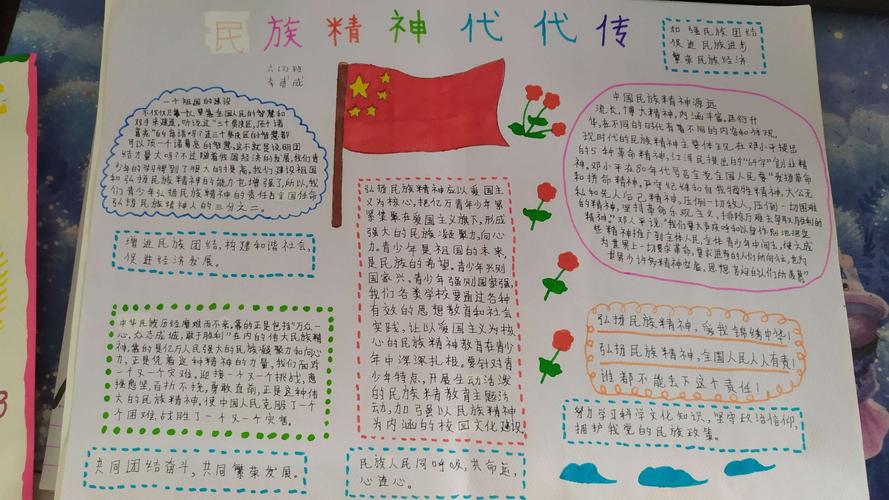 民族精神代代传
加强民族团结
促进民族进步
繁荣民族经济
六(2)班
一个祖国的建设
不仅仅
全国人民的智慧和
双手来建造,听说过“三个臭皮匠,顶个诸
葛亮”的名言吗?连三个臭皮匠的智慧都
可以顶一个诸葛亮的智慧,这不就是说明团
结力量大吗?不过随着我国经济的发展,我们青
少年的学习得到了很大的提高,我们建设祖国
和弘扬民族精神的能力也增强了,所以,我
们青少年弘扬民族精神的责任占全国任命
弘扬民族精神人的三分之一。
增进民族团结,构建和谐社会,
促进经济发展。
中华民族历经磨难而不衰,靠的正是包括“万众一
心、众志成城,敢于胜利”在内的伟大民族精
神,靠的是亿万人民强大的民族凝聚力和向心
力。正是凭着这种精神的力量,我们面对
一个又一个灾难,迎接一个又一个挑战,愈
挫愈坚,百折不挠,勇敢直前,正是这种伟
大的民族精神,使中国人民克服了一个
个困难,战胜了一个又一个灾害。
共同团结奋斗,共同繁荣发展。
弘扬民族精神应以爱国主
义为核心,把亿万青少年紧
紧集聚在爱国主义旗下,形成
强大的民族凝聚力,向心
力。青少年是祖国的未来,
是民族的希望。青少年兴则
国家兴。青少年强则国家强。
我们各类学校要通过各种
有效的思想教育和社会
实践,让以爱国主义为核
心的民族精神教育在青少
年中深深扎根。要针对青
少年特点,开展生动活泼
的民族精神教育主题活
动,加强以民族精神
为内涵的校园文化建设。
民族人民同呼吸,共命运,
心连心。
中国民族精神源远
流长,博大精深,内涵丰富,延衍升
华,在不同的时代有着不同的内容和体现。
现时代的民族精神主要体现在邓小平提出
的5种革命精神,江泽民提出的“64字”创业精
神,邓小平在80年代号召全党全国人民要“发扬革命
和拼命精神,严守纪律和自我牺牲精神,大公无
私和先人后己精神,压倒一切敌人,压倒一切困难
的精神,坚持革命乐观主义,排除万难去争取胜利的
精神。”邓小平说“我们要大声疾呼和以身作则地把这
些精神推广到全体人民,全体青少年中间去,使之成
为世界上一切要求革命,要求进步的人们所向往,也为
世界上许多精神空虚,思想苦闷的人们所羡慕”
弘扬民族精神,爱我锦绣中华!
弘扬民族精神,全国人民人人有责!
谁都不能丢下这个责任!
努力学习科学文化知识,坚守政治信仰,
拥护我党的民族政策。